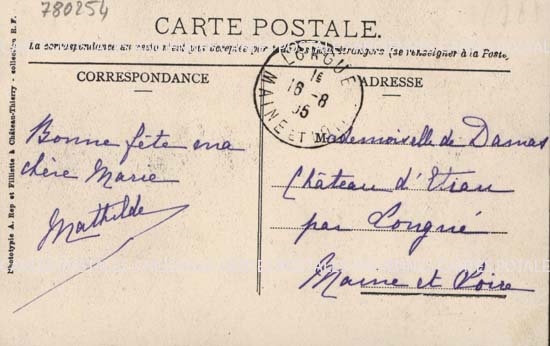 780254
CARTE POSTALE.
La correspondance au recto n'est pas acceptée par tous les pays étrangers (se renseigner à la Poste)
CORRESPONDANCE
ADRESSE
LONGUÉ
16-8
05
MAINE ET
Bonne fête ma
chère Marie
Mathilde
Mademoiselle de Damas
Château d'Etiau
par Longué
Maine et Loire
Phototypie A. Rep et Filliette à Château-Thierry - collection R. F.